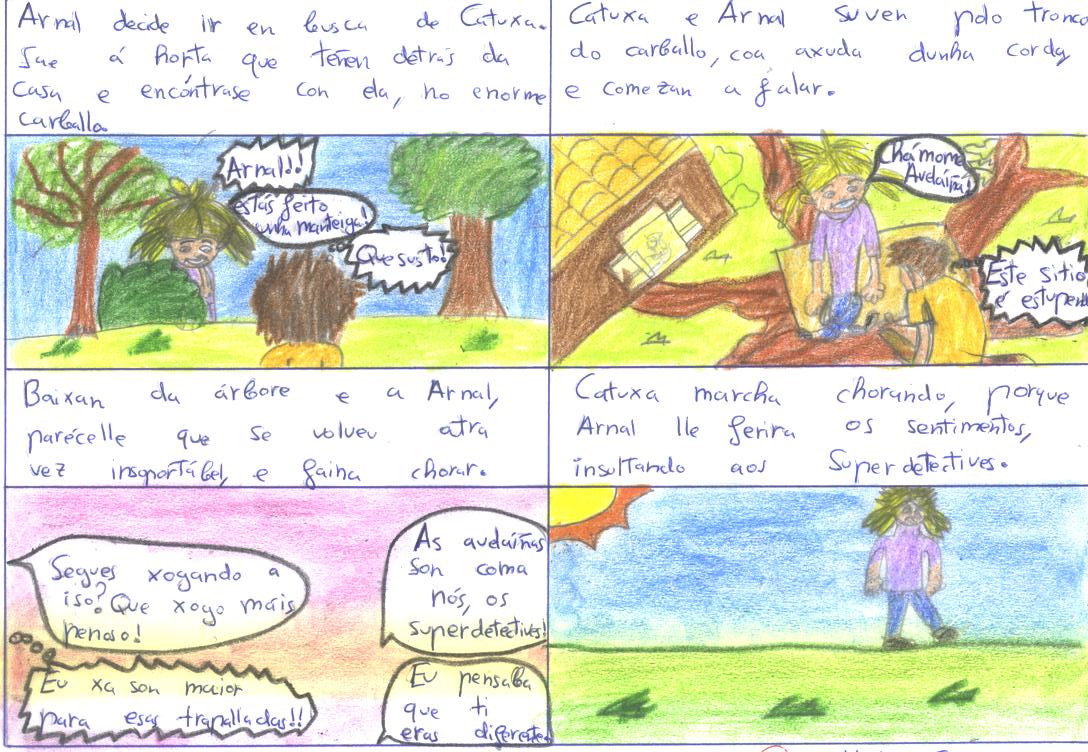 Arnal decide ir en busca de Catuxa.
Sae á horta que teñen detrás da
casa e encóntrase con ela, no enorme
carballo.
Catuxa e Arnal suven polo tronco
do carballo, coa axuda dunha corda
e comezan a falar.
Arnal!!
estás feito
unha manteiga!
Que susto!
Chámome
Avelaíña!
Este sitio
é estupendo
Baixan da árbore e a Arnal,
parécelle que se volveu atra
vez insoportábel, e faina chorar.
Catuxa marcha chorando, porque
Arnal lle ferira os sentimentos,
insultando aos Superdetectives.
Segues xogando a
iso? Que xogo máis
penoso!
Eu xa son maior
para esas trapalladas!!
As avelaíñas
son coma
nós, os
superdetectives!
Eu pensaba
que ti
eras diferente